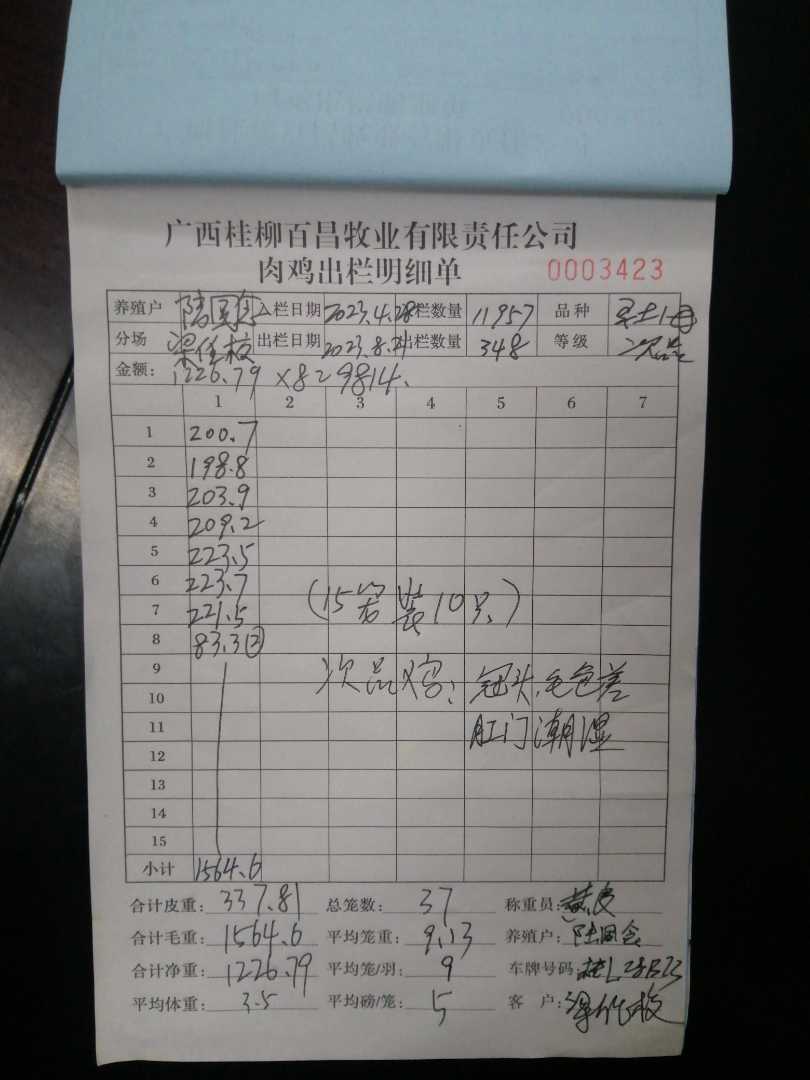 广西桂柳百昌牧业有限责任公司
肉鸡出栏明细单 0003423
养殖户 陆国 入栏日期 2023.4.28 栏数量 11957 品种
分场 梁 枝 出栏日期 2023.8.21 出栏数量 348 等级 次品
金额: 1226.79 ×8=9814.
1 2 3 4 5 6 7
1 200.7
2 198.8
3 203.9
4 209.2
5 223.5
6 223.7
7 221.5 (15笼装10只)
8 83.3②
9 次品鸡: 冠头,毛色差
10
11 肛门潮湿
12
13
14
15
小计 1564.6
合计皮重: 337.81 总笼数: 37 称重员: 黄
合计毛重: 1564.6 平均笼重: 9.13 养殖户: 陆国
合计净重: 1226.79 平均笼/羽: 9 车牌号码: 桂L
平均体重: 3.5 平均磅/笼: 5 客 户: 梁 枝